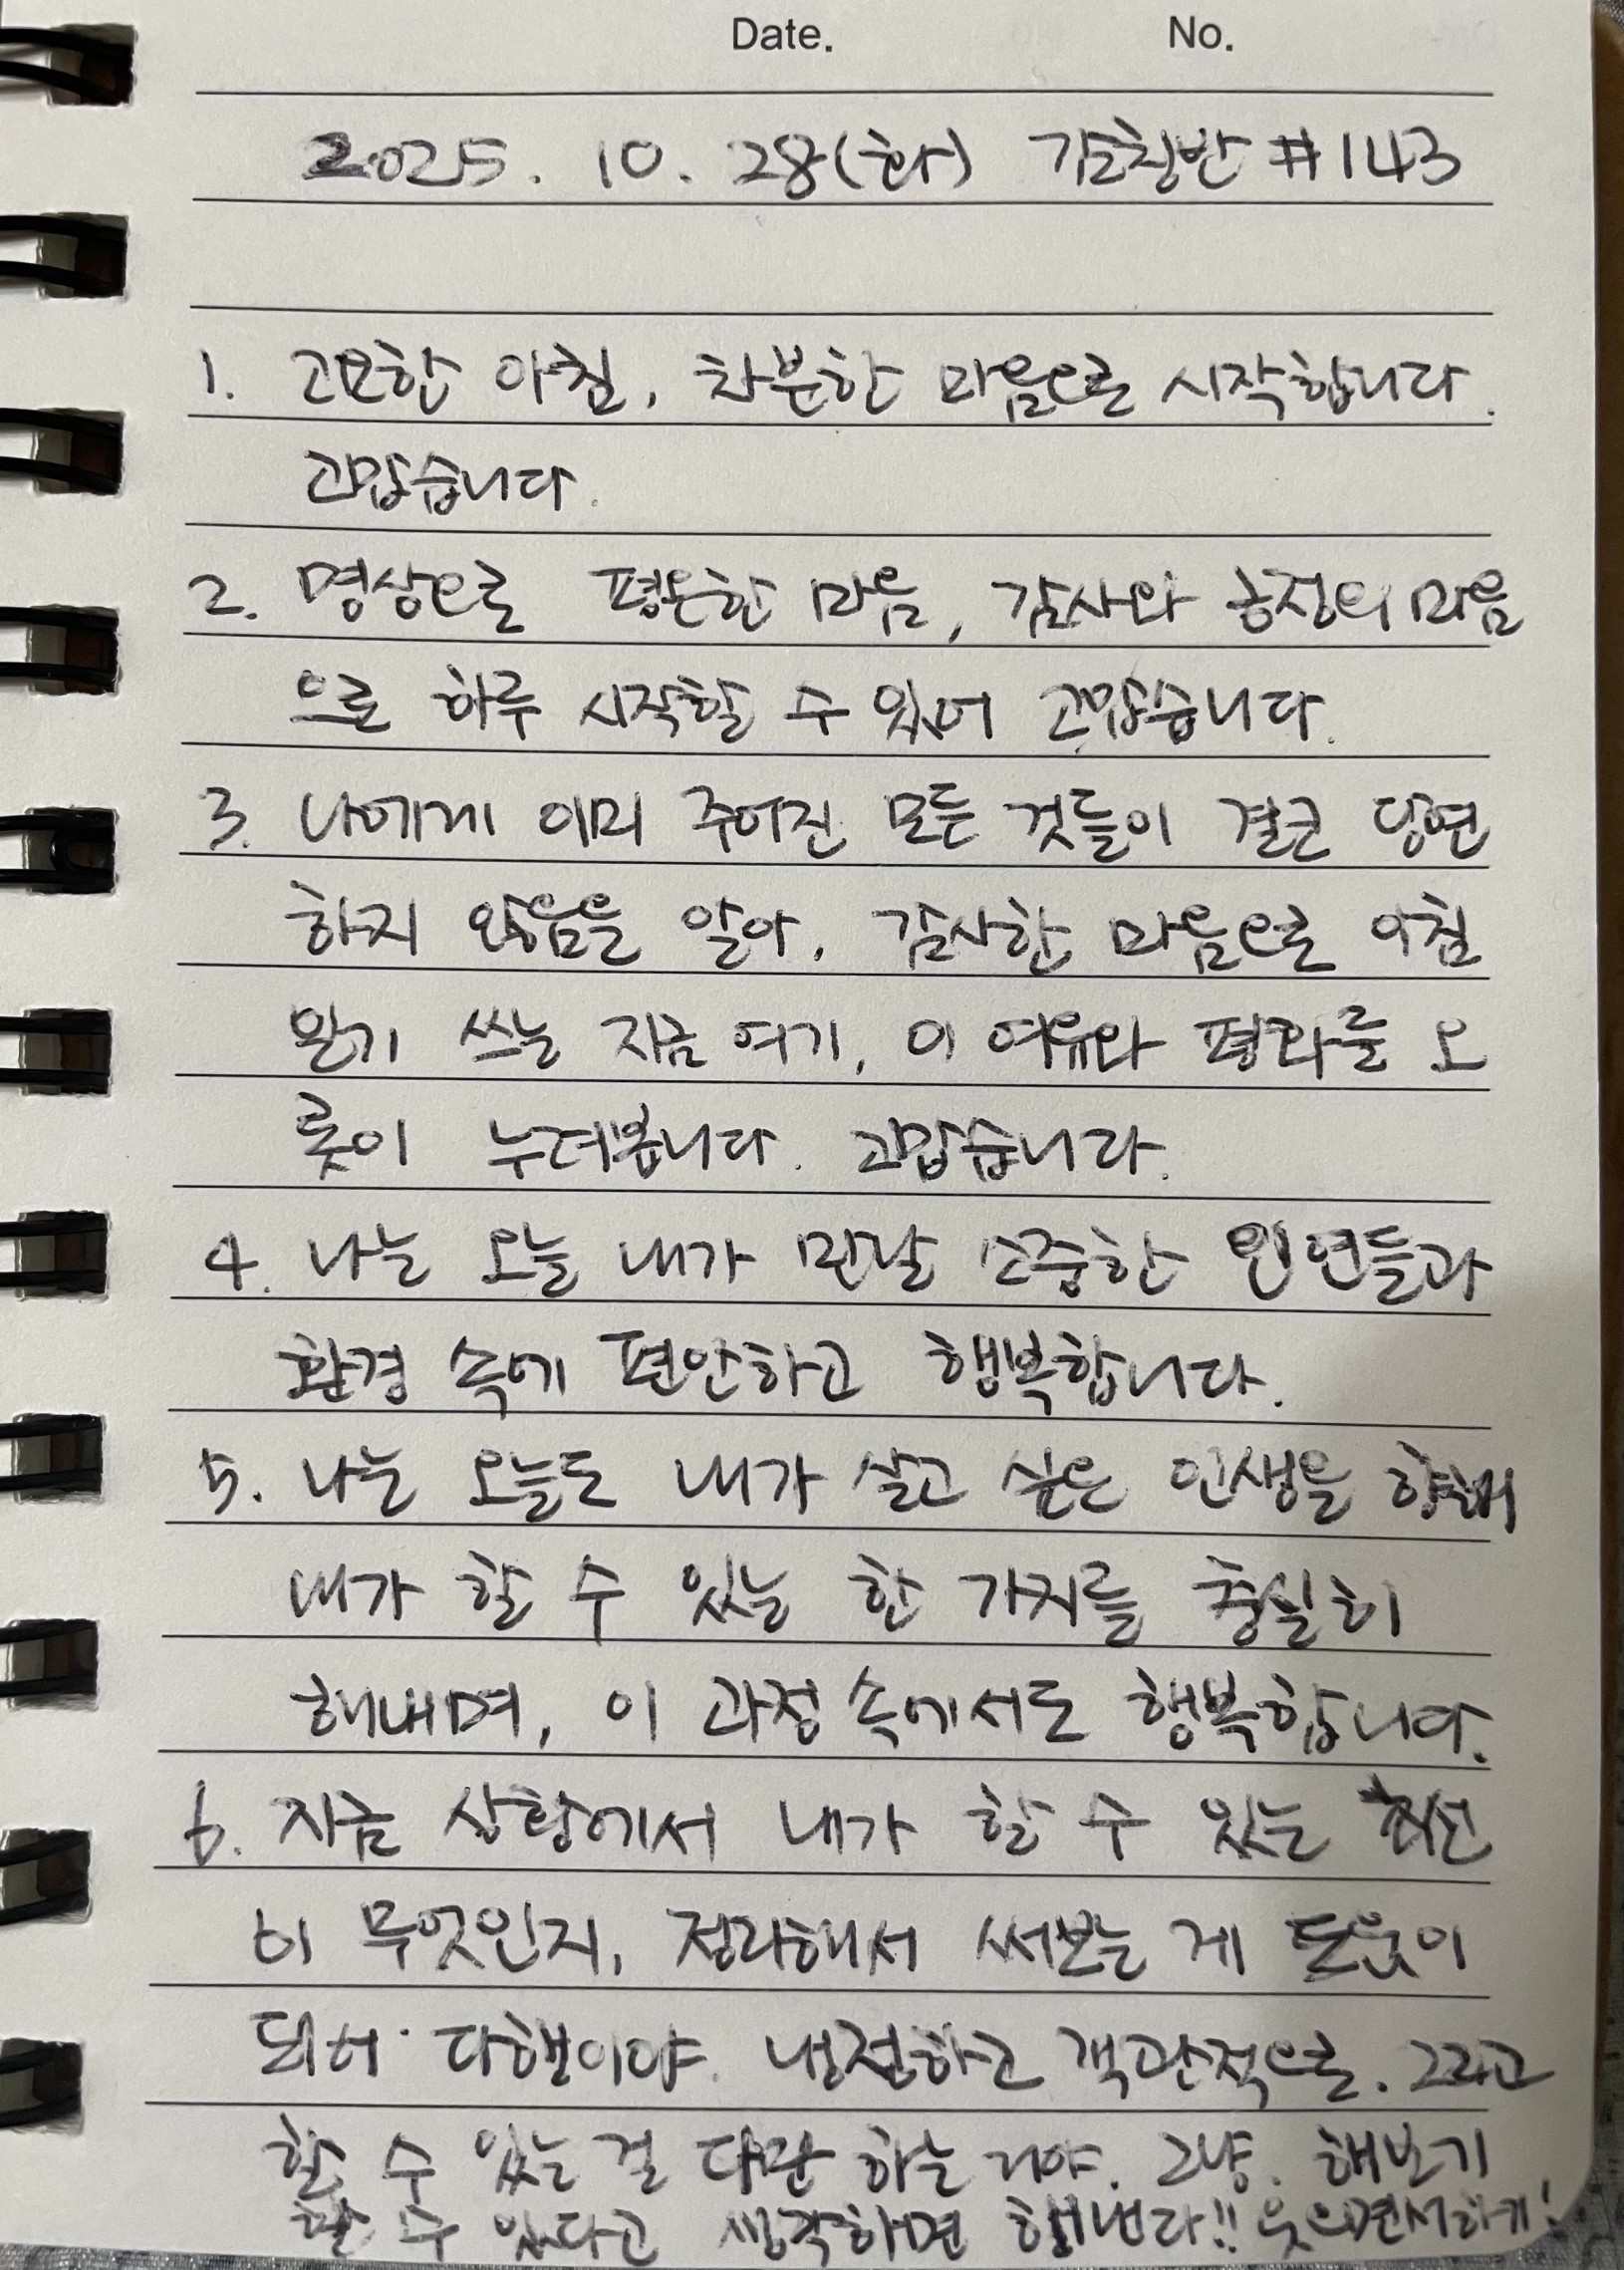 Date. No.
2025. 10. 28(화) 감칭반 #143
1. 고요한 아침, 차분한 마음으로 시작합니다.
고맙습니다.
2. 명상으로 평온한 마음, 감사와 긍정의 마음
으로 하루 시작할 수 있어 고맙습니다.
3. 나에게 이미 주어진 모든 것들이 결코 당연
하지 않음을 알아, 감사한 마음으로 아침
일기 쓰는 지금 여기, 이 여유와 평화를 오
롯이 누려봅니다. 고맙습니다.
4. 나는 오늘 내가 만날 소중한 인연들과
환경 속에 편안하고 행복합니다.
5. 나는 오늘도 내가 살고 싶은 인생을 향해
내가 할 수 있는 한 가지를 충실히
해내며, 이 과정 속에서도 행복합니다.
6. 지금 상황에서 내가 할 수 있는 최선
이 무엇인지, 정리해서 써보는 게 도움이
되어 다행이야. 냉정하고 객관적으로. 그리고
할 수 있는 걸 다만 하는 거야. 그냥. 해보기
할 수 있다고 생각하면 해낸다!! 웃으면서하기!